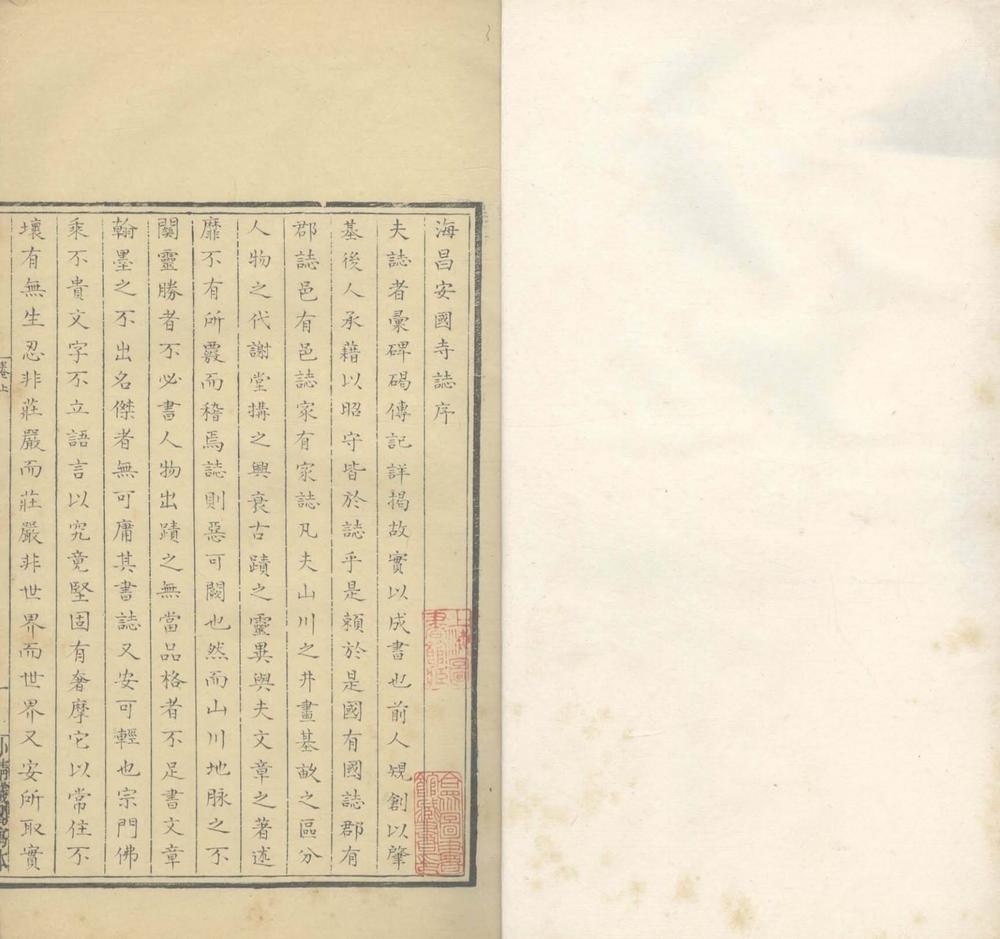 海昌安國寺誌序
夫誌者彚碑碣傳記詳掲故實以成書也前人規創以肇
基後人承藉以昭守皆於誌乎是頼於是國有國誌郡有
郡誌邑有邑誌家有家誌凡夫山川之井畫基畝之區分
人物之代謝堂搆之興衰古蹟之靈異與夫文章之著述
靡不有所覈而稽焉誌則惡可闕也然而山川地脉之不
關靈勝者不必書人物出蹟之無當品格者不足書文章
翰墨之不出名傑者無可庸其書誌又安可輕也宗門佛
乘不貴文字不立語言以究竟堅固有奢摩它以常住不
壞有無生忍非莊嚴而莊嚴非世界而世界又安所取實
卷上
一